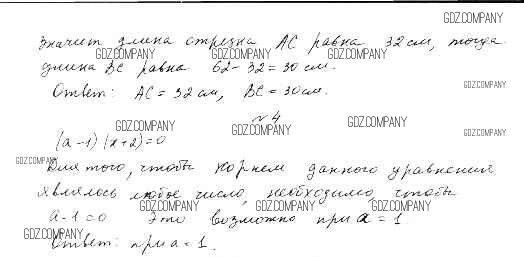 GDZ.COMPANY
значит длина отрезка AC равна 32 см, тогда
GDZ.COMPANY GDZ.COMPANY GDZ.COMPANY
длина BC равна 62-32=30 см.
GDZ.COMPANY
Ответ: AC = 32 см, BC = 30 см.
№4
GDZ.COMPANY GDZ.COMPANY GDZ.COMPANY
GDZ.COMPANY
(a-1)(x+2)=0
GDZ.COMPANY
Для того, чтобы корнем данного уравнения
являлось любое число, необходимо, чтобы
GDZ.COMPANY GDZ.COMPANY GDZ.COMPANY
a-1=0 Это возможно при a = 1
GDZ.COMPANY
Ответ: при a = 1.